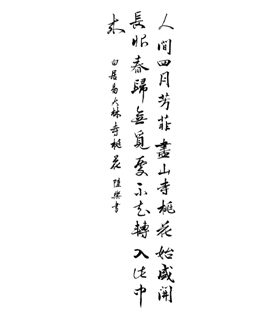 人間四月芳菲盡山寺桃花始盛開
長恨春歸無覓處不知轉入此中
來
白居易大林寺桃花 陸樂書